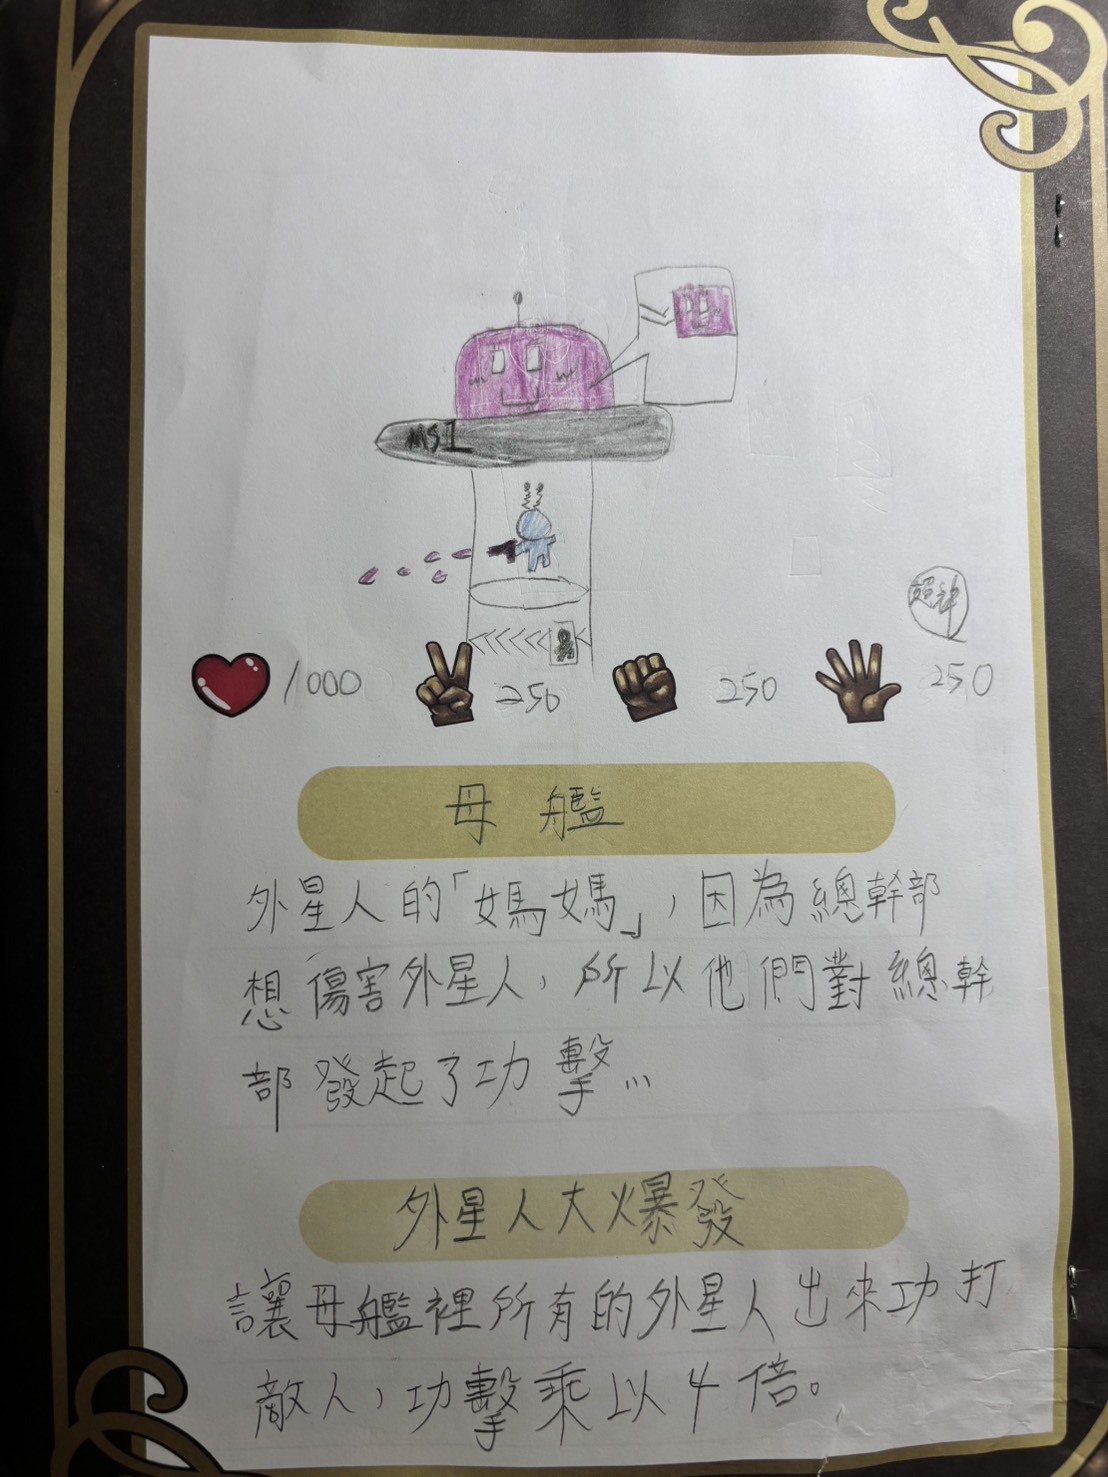 MSI
超神
1000 250 250 250
母艦
外星人的「媽媽」,因為總幹部
想傷害外星人,所以他們對總幹
部發起了功擊...
外星人大爆發
讓母艦裡所有的外星人出來功打
敵人,功擊乘以4倍。